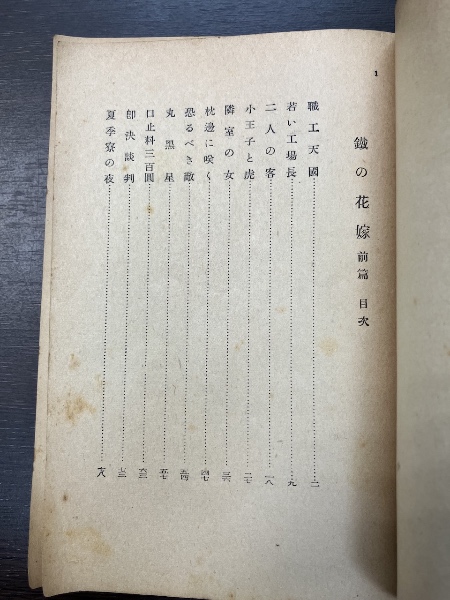 1
鐵の花嫁 前篇 目次
職工天國
若い工場長 九
二人の客 一八
小王子と虎 二七
隣室の女 三六
枕邊に咲く 四七
恐るべき敵 五四
丸黑星 五七
口止料三百圓 六三
卽決談判
夏季寮の夜